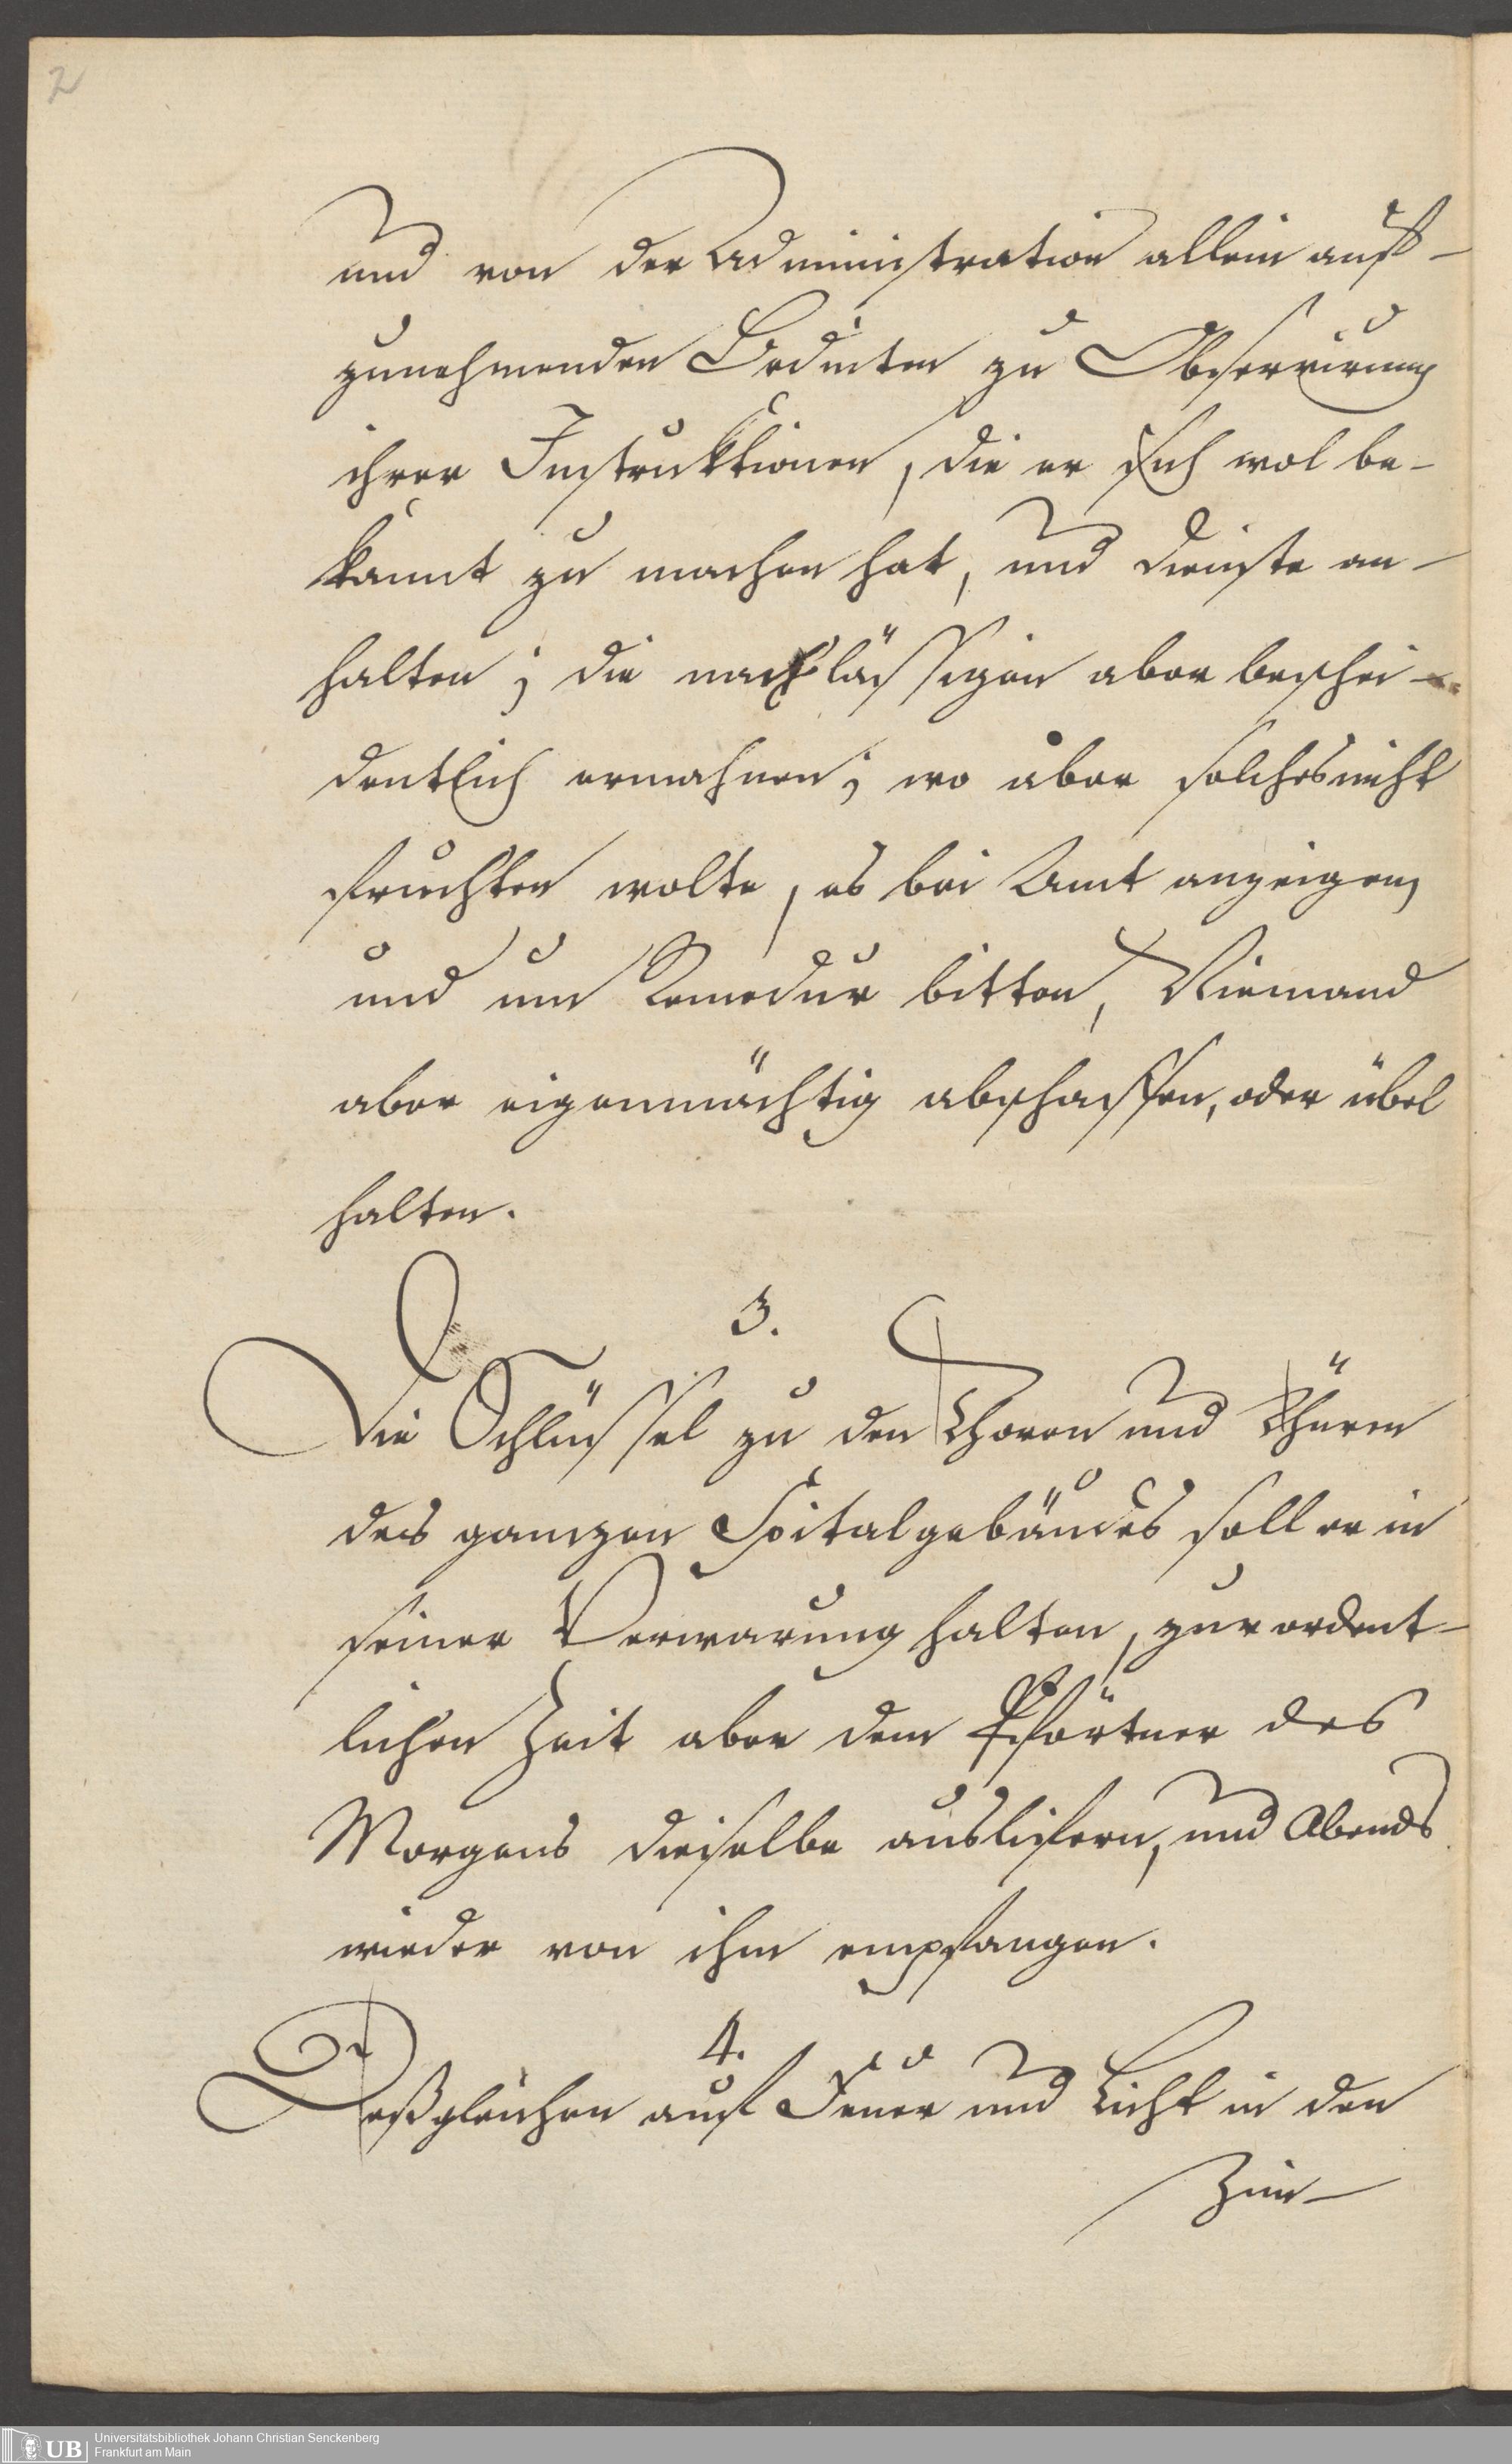 2
und von der Administration allein auf-
zunehmenden Bedinten zu Observirung
ihrer Instruktionen, die er sich wol be-
kannt zu machen hat, und Dienste an-
halten; die nachlässigen aber beschei-
dentlich ermahnen; wo aber solches nicht
fruchten wolte, es bei Amt anzeigen,
und um Remedur bitten, Niemand
aber eigenmächtig abschaffen, oder übel
halten.
3.
Die Schlüssel zu den Thoren und Thüren
des ganzen Spitalgebäudes soll er in
seiner Verwarung halten, zur ordent-
lichen Zeit aber dem Pförtner des
Morgens dieselbe auslifern, und Abends
wieder von ihm empfangen.
4.
Deßgleichen auf Feuer und Licht in den
Zim-
UB
Universitätsbibliothek Johann Christian Senckenberg
Frankfurt am Main